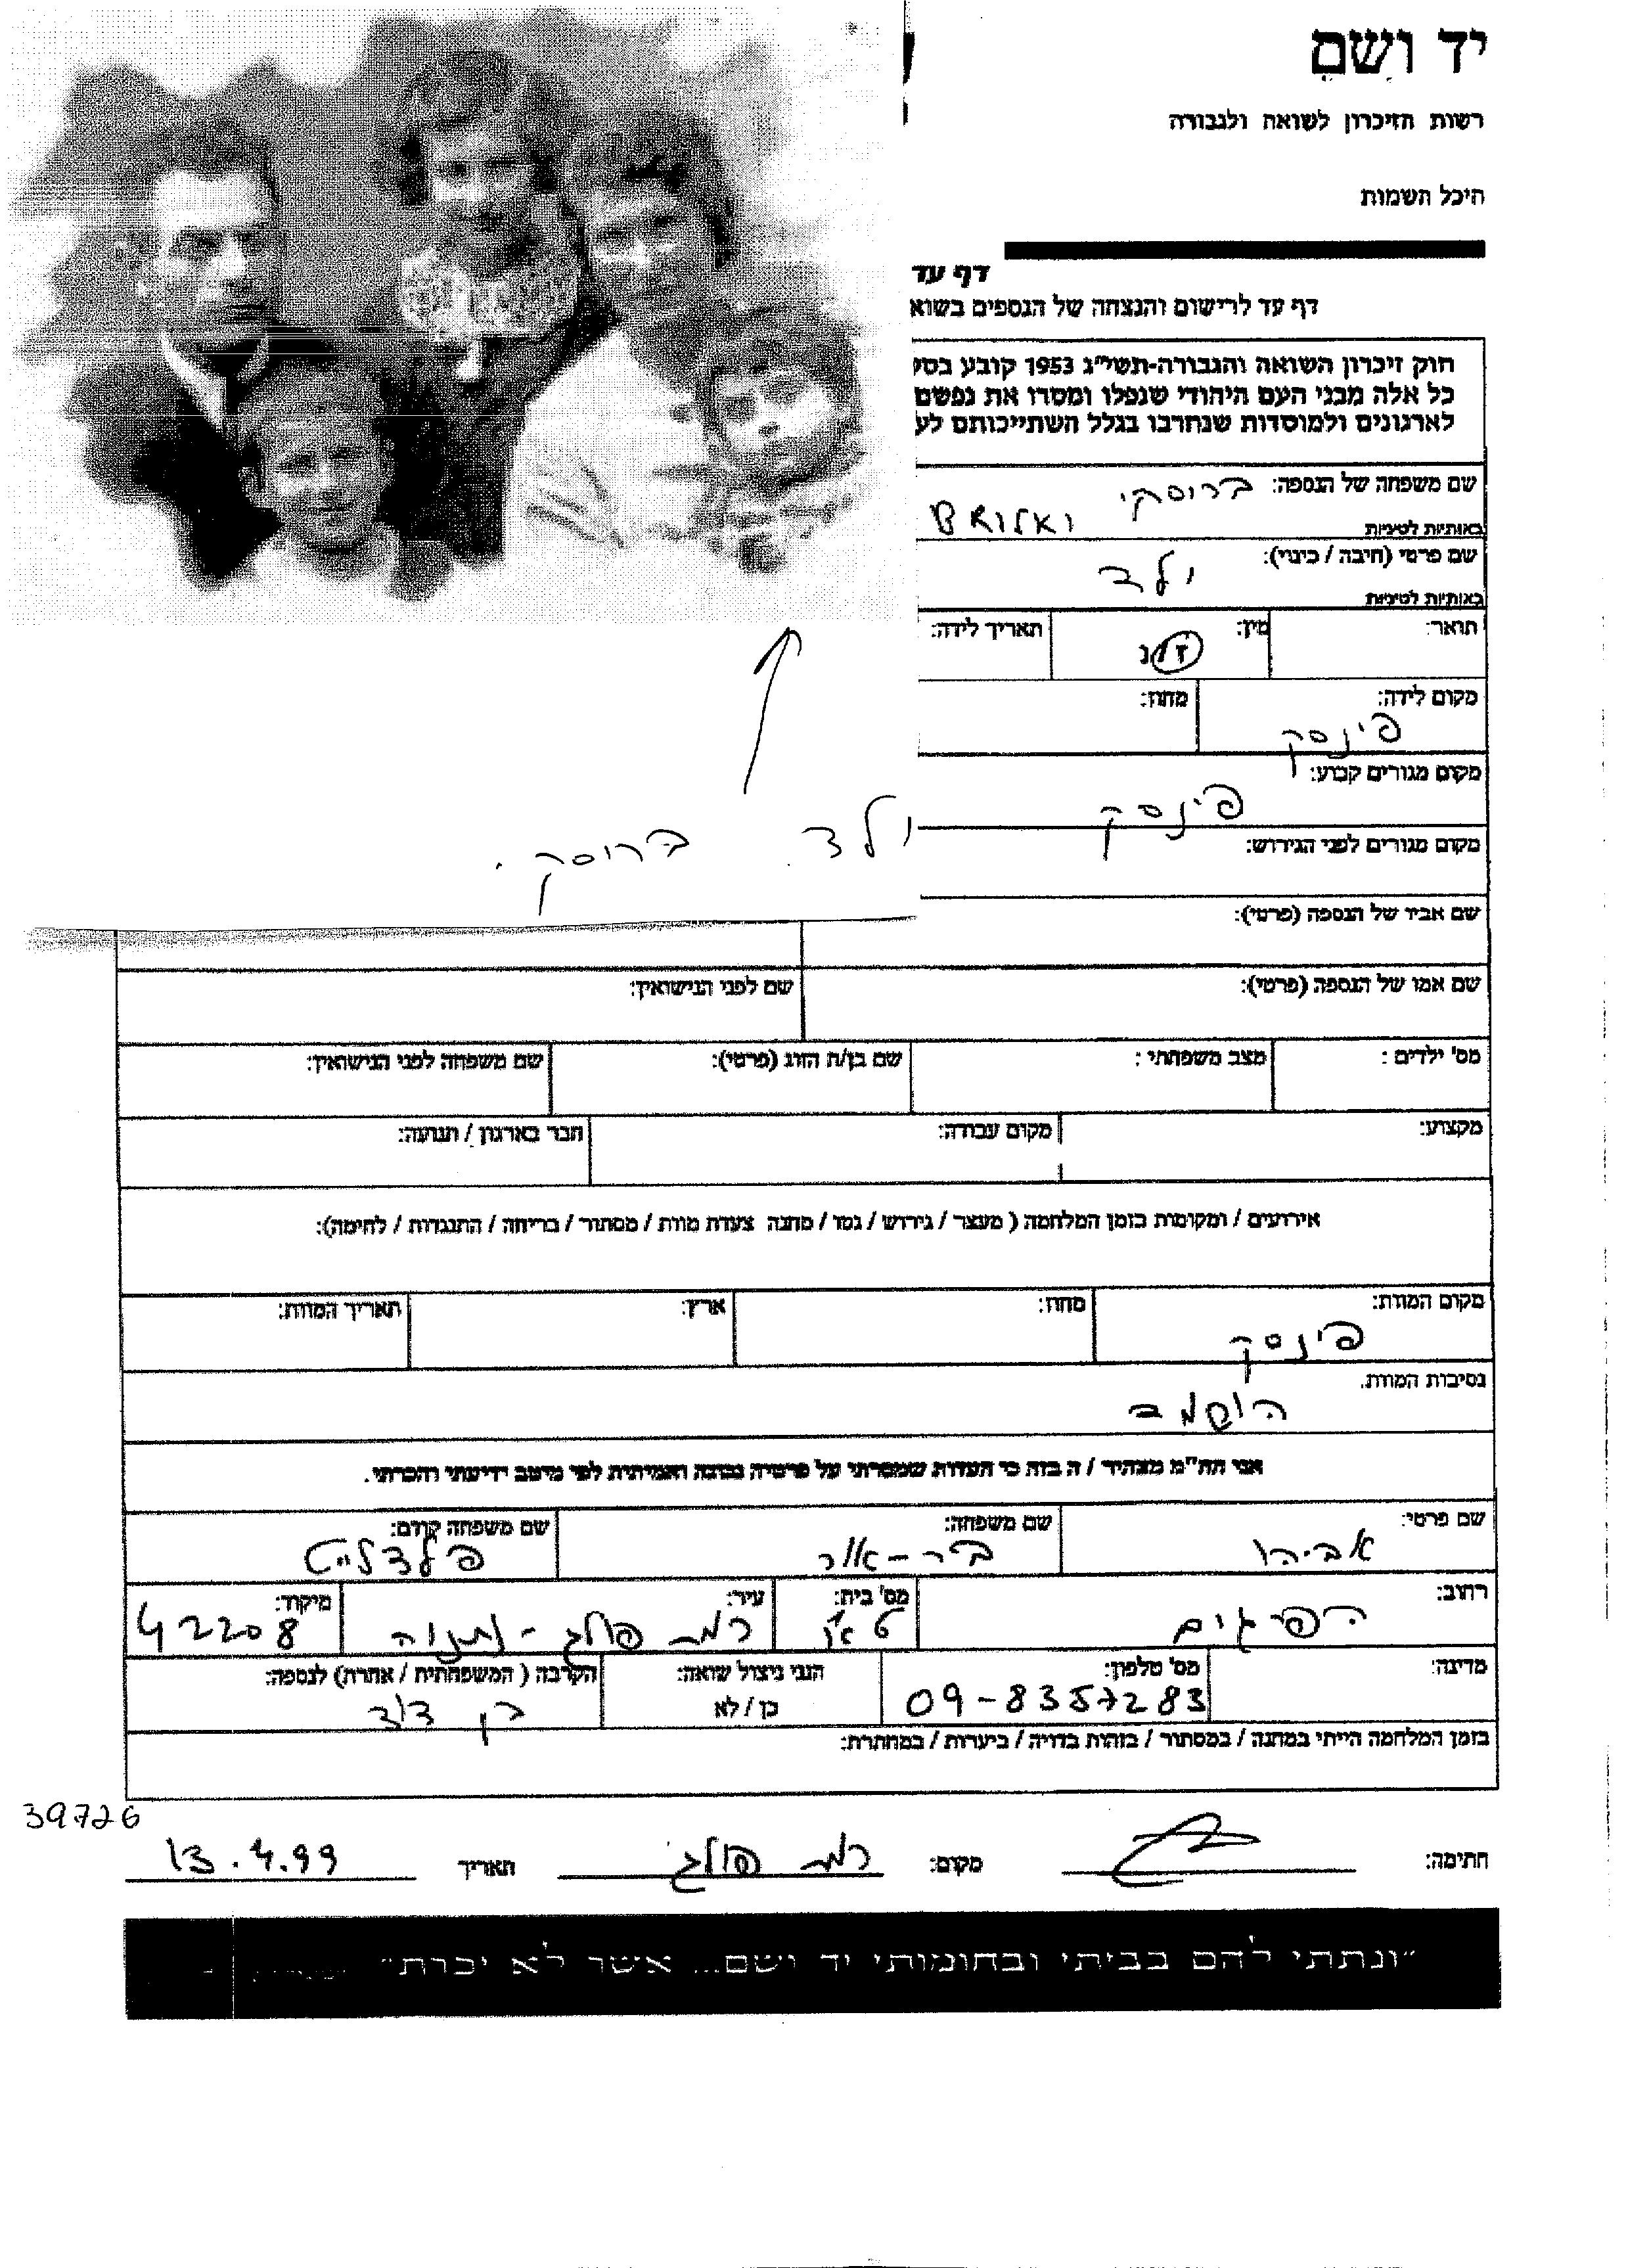 יד ושם
רשות הזיכרון לשואה ולגבורה
היכל השמות
דף עד
דף עד לרישום והנצחה של הנספים בשוא
חוק זיכרון השואה והגבורה-תשי"ג 1953 קובע בסע
כל אלה מבני העם היהודי שנפלו ומסרו את נפשם
לארגונים ולמוסדות שנחרבו בגלל השתייכותם לע
שם משפחה של הנספה: ברוסקי
באותיות לטיניות
שם פרטי (חיבה / כינוי): ולד
באותיות לטיניות
תואר: מין: ז/נ תאריך לידה:
מקום לידה: פינסק מחוז:
מקום מגורים קבוע: פינסק
ולד ברוסקי
מקום מגורים לפני הגירוש:
שם אביו של הנספה (פרטי):
שם אמו של הנספה (פרטי): שם לפני הנישואין:
מס' ילדים : מצב משפחתי : שם בן/ת הזוג (פרטי): שם משפחה לפני הנישואין:
מקצוע: מקום עבודה: חבר בארגון / תנועה:
אירועים / ומקומות בזמן המלחמה ( מעצר / גירוש / גטו / מחנה צעדת מוות / מסתור / בריחה / התנגדות / לחימה):
מקום המוות: פינסק מחוז: ארץ: תאריך המוות:
נסיבות המוות.
אני הח"מ מצהיר / ה בזה כי העדות שמסרתי על פרטיה נכונה ואמיתית לפי מיטב ידיעתי והכרתי.
שם פרטי: אביהו שם משפחה: בר-אור שם משפחה קודם: פלדלייט
רחוב: הפרגים מס' בית: עיר: רמת פולג - נתניה מיקוד: 42208
מדינה: מס' טלפון: 09-8357283 הנני ניצול שואה: כן / לא הקרבה ( המשפחתית / אחרת) לנספה: בן דוד
בזמן המלחמה הייתי במחנה / במסתור / בזהות בדויה / ביערות / במחתרת:
39726
חתימה: מקום: רמת פולג תאריך 13.4.99
"ונתתי להם בביתי ובחומותי יד ושם... אשר לא יכרת"